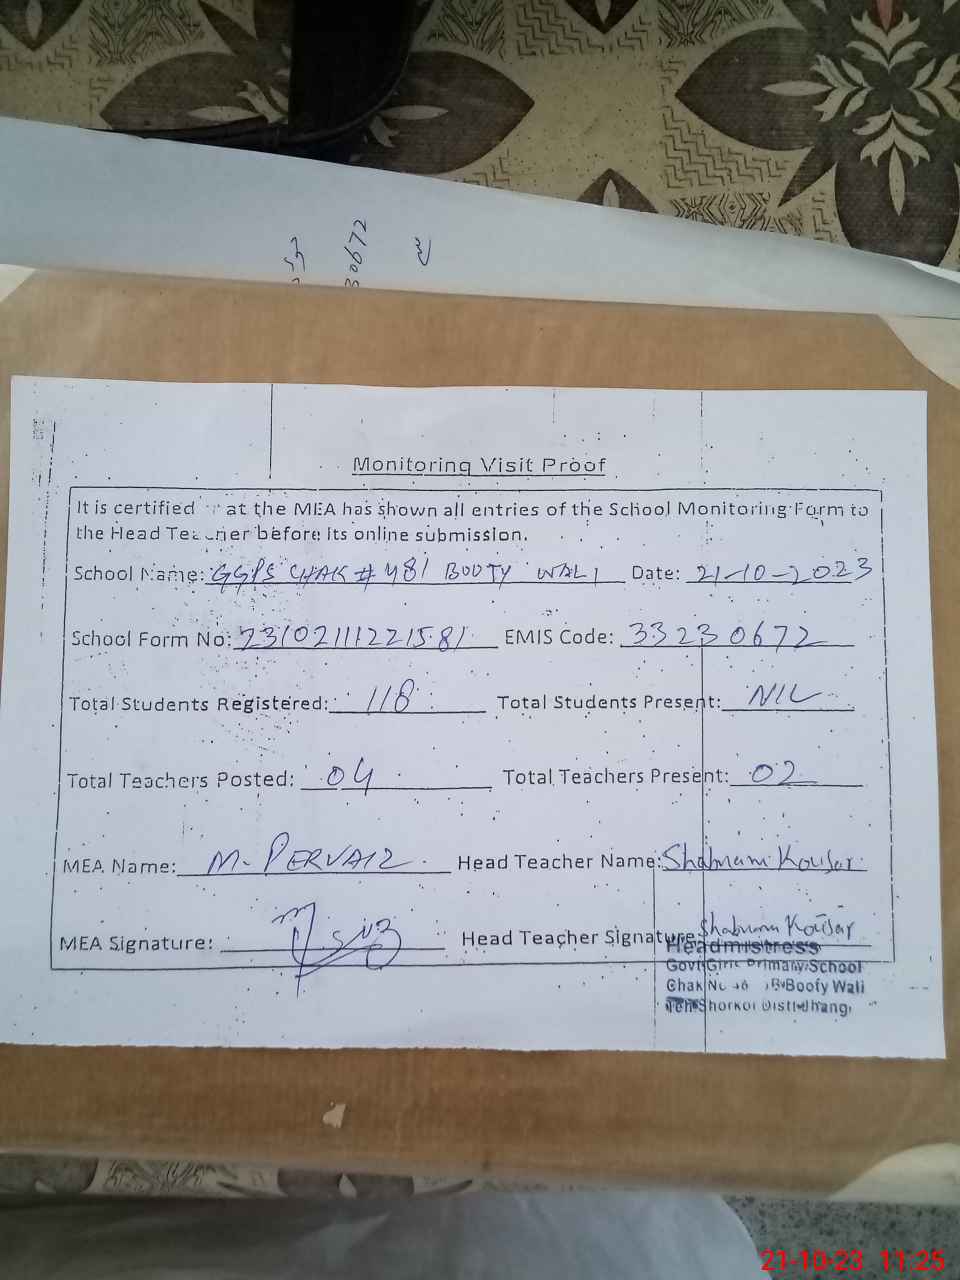 30672
Monitoring Visit Proof
It is certified at the MEA has shown all entries of the School Monitoring Form to
the Head Teacher before its online submission.
School Name: GGPS CHAK # 481 BOOTY WALI Date: 21-10-2023
School Form No: 23102111221581 EMIS Code: 33230672
Total Students Registered: 118 Total Students Present: NIL
Total Teachers Posted: 04 Total Teachers Present: 02
MEA Name: M. PERVAIZ Head Teacher Name: Shabnam Kousar
MEA Signature: Head Teacher Signature Shabnam Kousar
Headmistress
Govt Girls Primary School
Chak No Boofy Wali
Teh Shorkot Distt Jhang
21-10-23 11:25